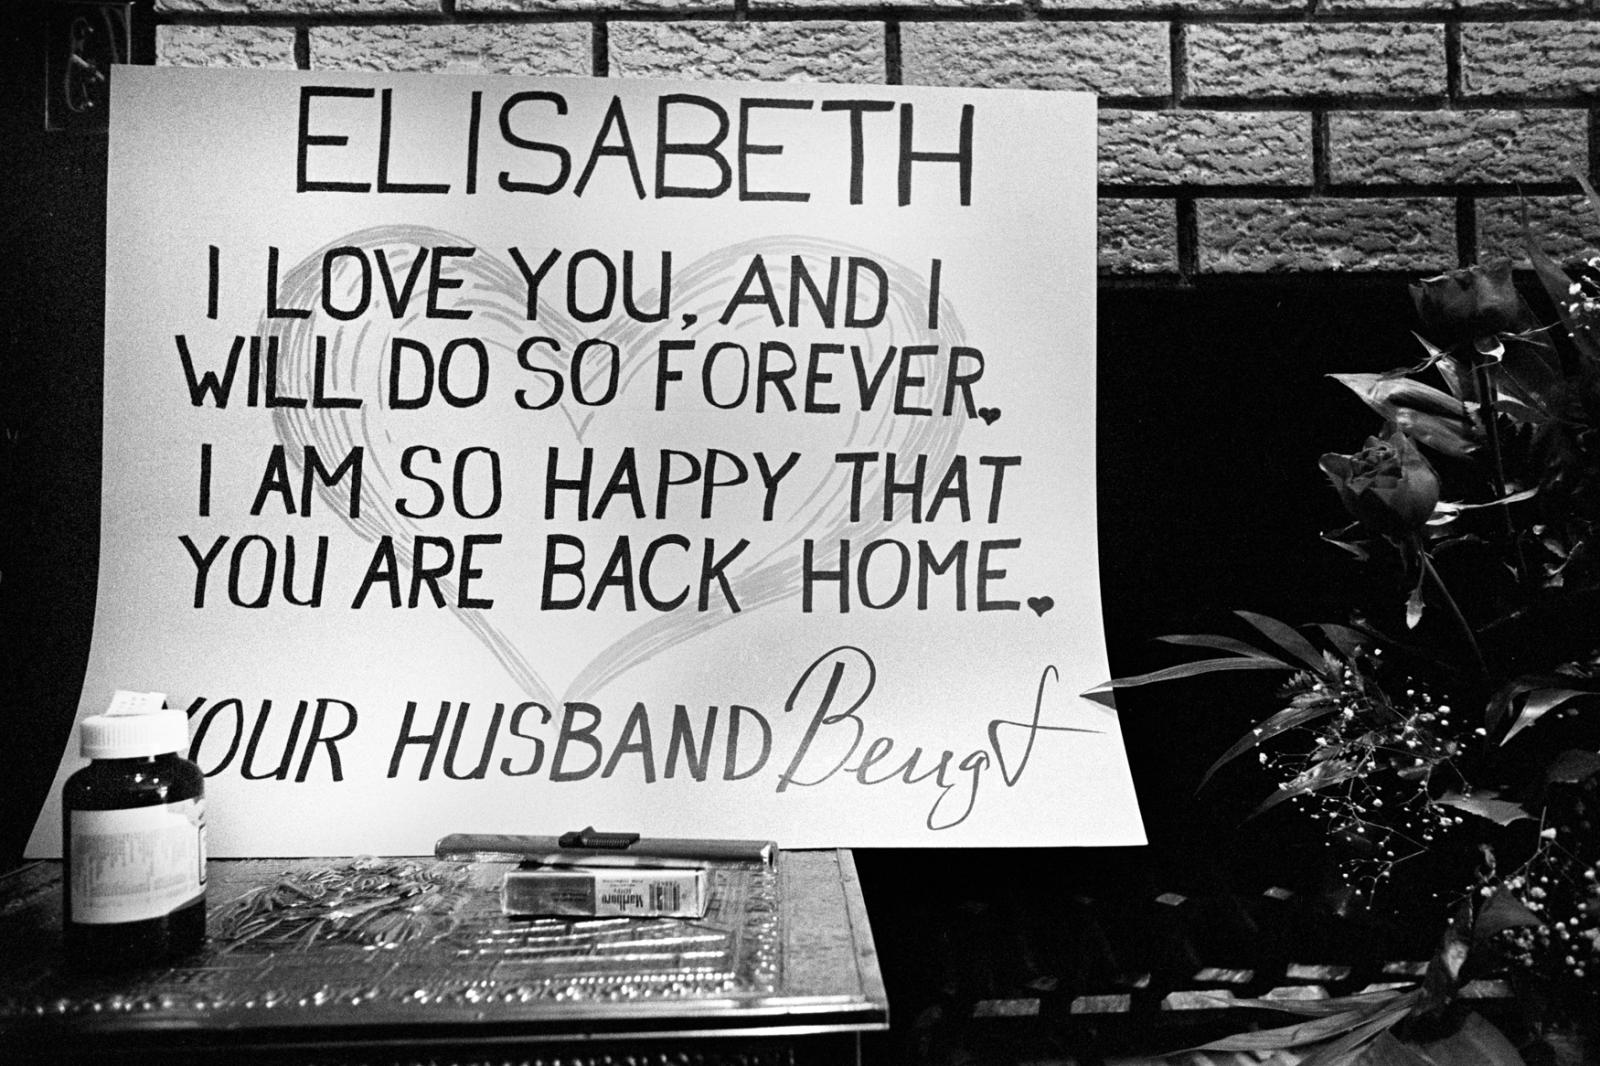 ELISABETH
I LOVE YOU, AND I
WILL DO SO FOREVER.
I AM SO HAPPY THAT
YOU ARE BACK HOME.
YOUR HUSBAND Bengt
Marlboro